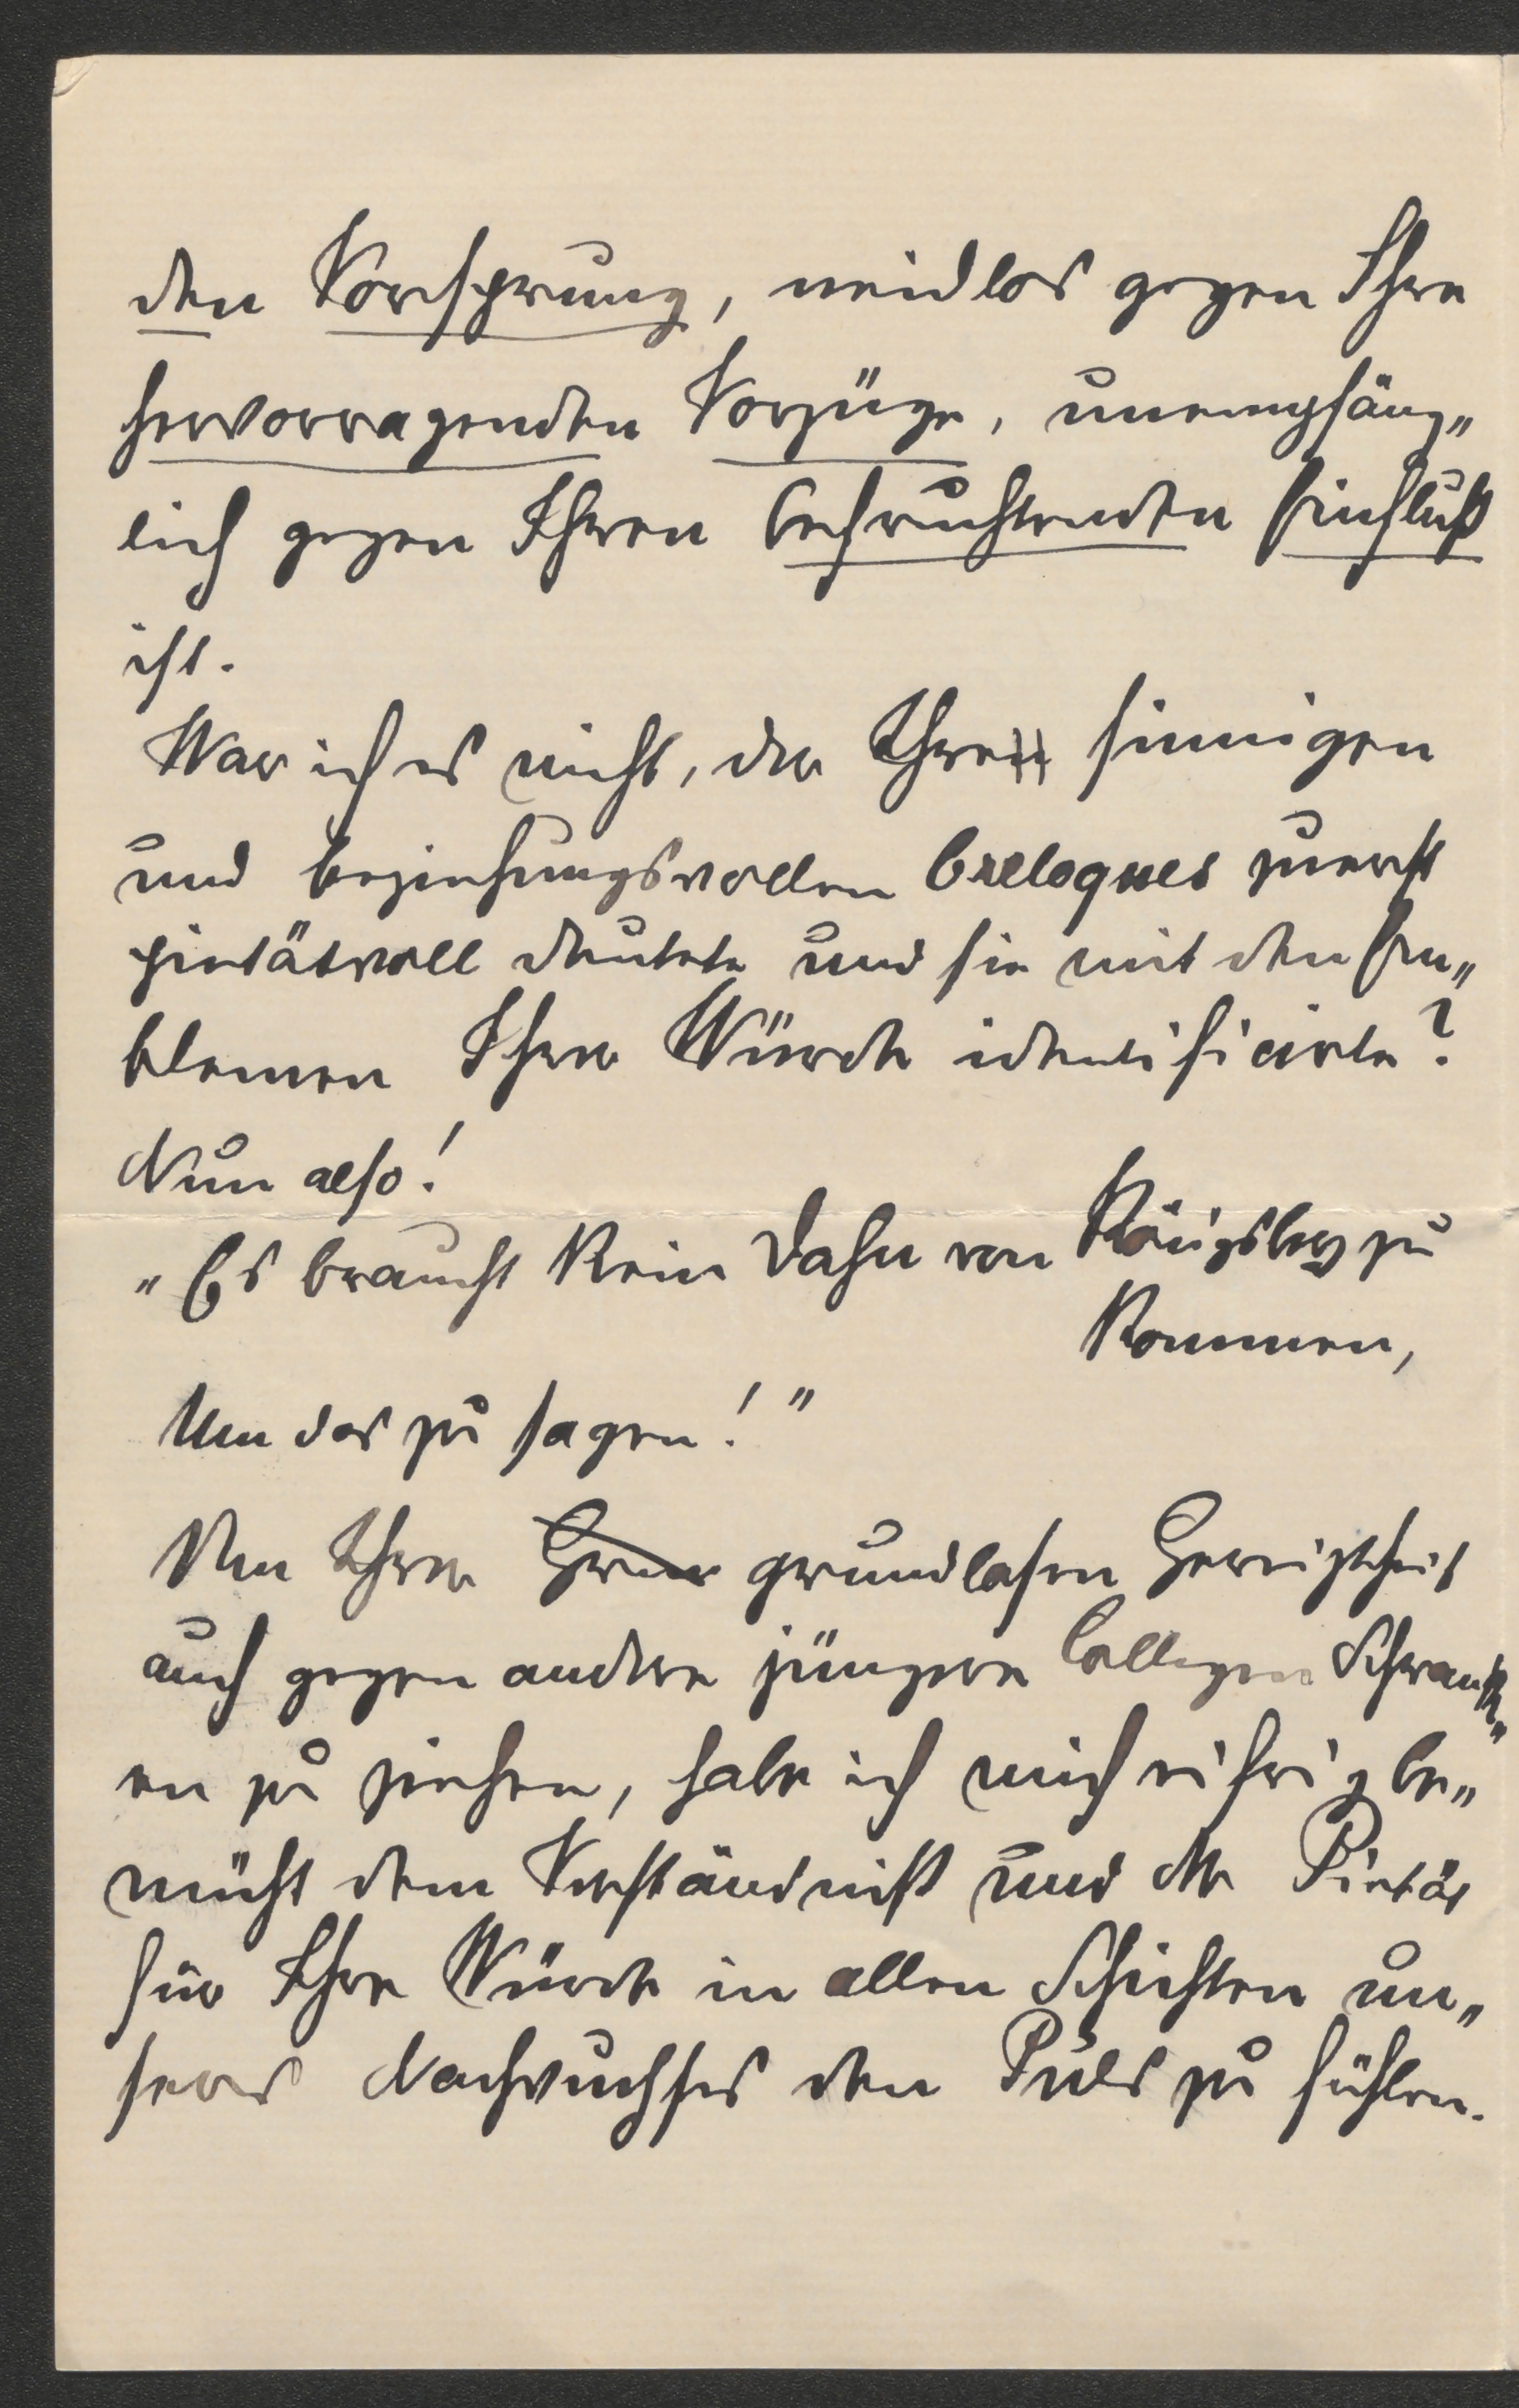 den Vorsprung, neidlos gegen Ihre
hervorragenden Vorzüge, unempfäng„
lich gegen Ihren befruchtenden Einfluß
ist.
War ich es nicht, der Ihre sinnigen
und beziehungsvollen breloques zuerst
pietätvoll deutete und sie mit den Em„
blemen Ihrer Würde identificirte?
Nun also!
„Es braucht kein Dahn von Königsberg zu
kommen,
Um das zu sagen!"
Um Ihrer grundlosen Gereiztheit
auch gegen andere jüngere Collegen Schrank„
en zu ziehen, habe ich mich eifrig be„
müht dem Verständniß und der Pietät
für Ihre Würde in allen Schichten un„
seres Nachwuchses den Puls zu fühlen.